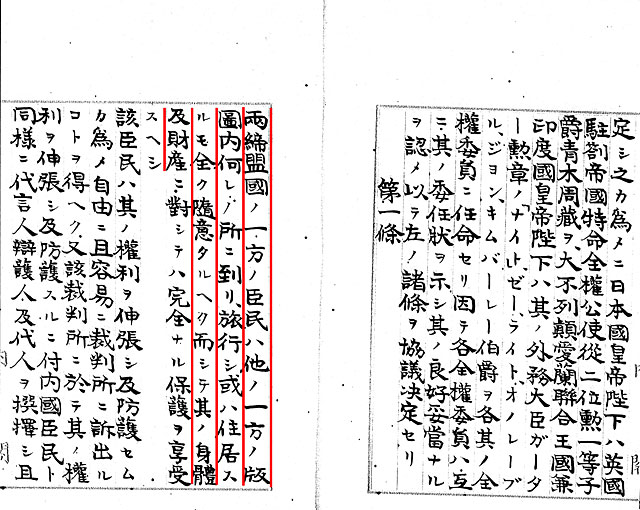 定シ之カ為メニ日本國皇帝陛下ハ英國
駐劄帝國特命全權公使從二位勲一等子
爵青木周藏ヲ大不列顛愛蘭聯合王國兼
印度國皇帝陛下ハ其ノ外務大臣ガータ
ー勲章ノ「ナイト」ゼ、ライト、オノレーブ
ル、ジョン、キムバーレー伯爵ヲ各其ノ全
權委員ニ任命セリ因テ各全權委員ハ互
ニ其ノ委任狀ヲ示シ其ノ良好妥當ナル
ヲ認メ以テ左ノ諸條ヲ協議決定セリ
第一條
兩締盟國ノ一方ノ臣民ハ他ノ一方ノ版
圖內何レノ所ニ到リ旅行シ或ハ住居ス
ルモ全ク隨意タルヘク而シテ其ノ身體
及財産ニ對シテハ完全ナル保護ヲ享受
スヘシ
該臣民ハ其ノ權利ヲ伸張シ及防護セム
カ為メ自由ニ且容易ニ裁判所ニ訴出ル
コトヲ得ヘク又該裁判所ニ於テ其ノ權
利ヲ伸張シ及防護スルニ付內國臣民ト
同樣ニ代言人辯護人及代人ヲ撰擇シ且